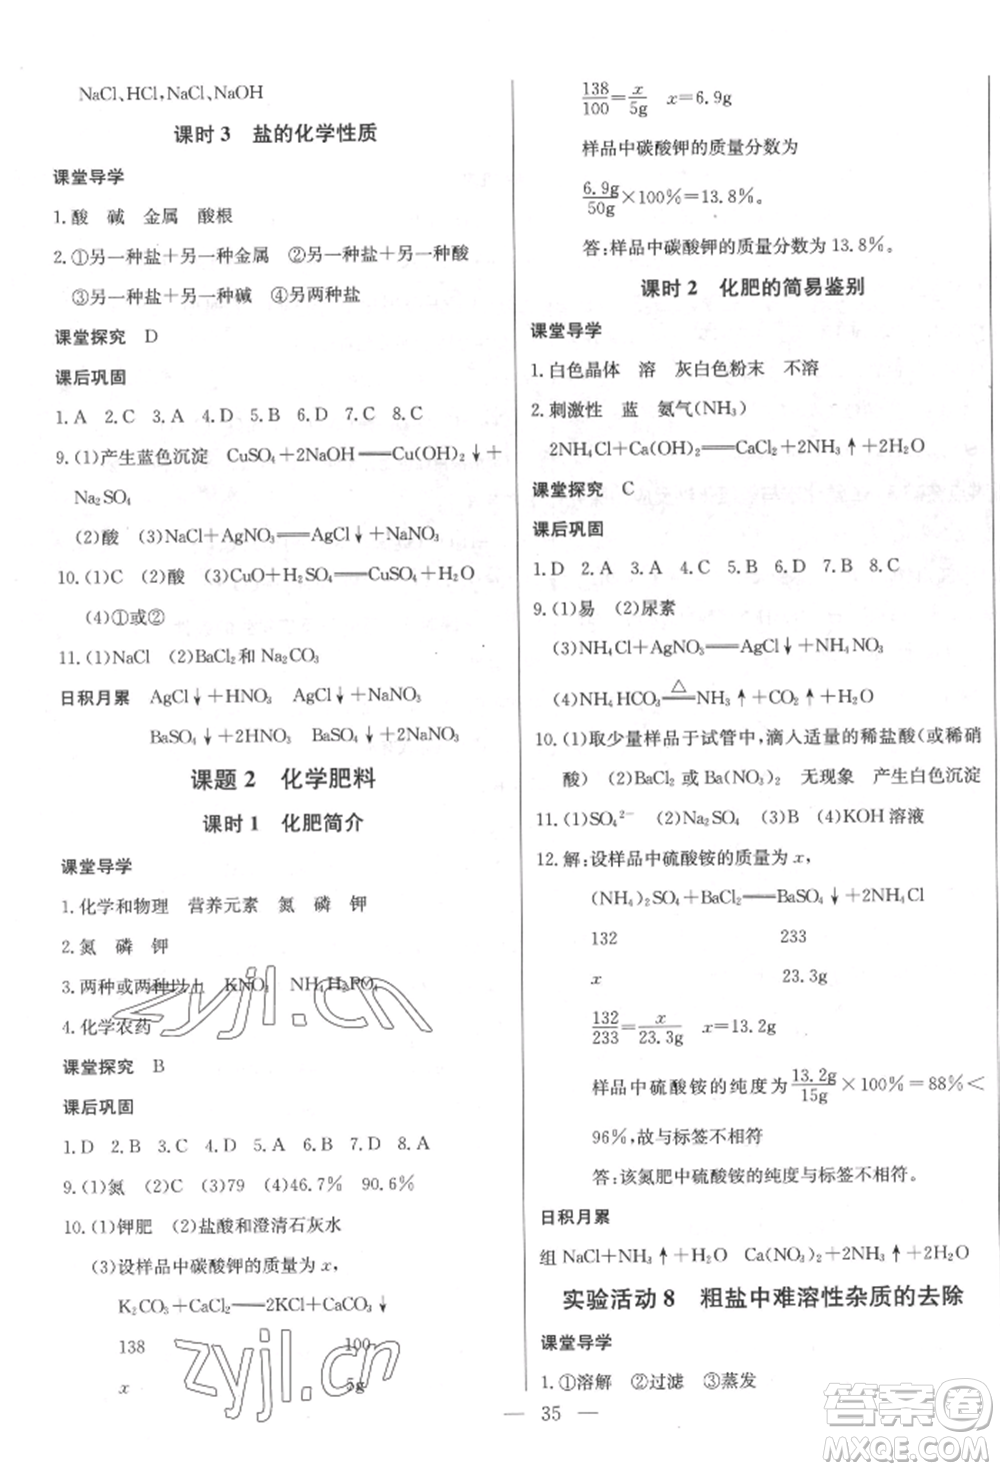 NaCl、HCl、NaCl、NaOH
课时3 盐的化学性质
课堂导学
1.酸 碱 金属 酸根
2.①另一种盐＋另一种金属 ②另一种盐＋另一种酸
③另一种盐＋另一种碱 ④另两种盐
课堂探究 D
课后巩固
1.A 2.C 3.A 4.D 5.B 6.D 7.C 8.C
9.(1)产生蓝色沉淀 CuSO₄+2NaOH══Cu(OH)₂↓+
Na₂SO₄
(2)酸 (3)NaCl+AgNO₃══AgCl↓+NaNO₃
10.(1)C (2)酸 (3)CuO+H₂SO₄══CuSO₄+H₂O
(4)①或②
11.(1)NaCl (2)BaCl₂和Na₂CO₃
日积月累 AgCl↓+HNO₃ AgCl↓+NaNO₃
BaSO₄↓+2HNO₃ BaSO₄↓+2NaNO₃
课题2 化学肥料
课时1 化肥简介
课堂导学
1.化学和物理 营养元素 氮 磷 钾
2.氮 磷 钾
3.两种或两种以上 KNO₃ NH₄H₂PO₄
4.化学农药
课堂探究 B
课后巩固
1.D 2.B 3.C 4.C 5.B 6.B 7.D 8.A
9.(1)氮 (2)C (3)79 (4)46.7% 90.6%
10.(1)钾肥 (2)盐酸和澄清石灰水
(3)设样品中碳酸钾的质量为x,
K₂CO₃+CaCl₂══2KCl+CaCO₃↓
138 100
x 5g
138/100=x/5g x=6.9g
样品中碳酸钾的质量分数为
6.9g/50g×100%=13.8%
答:样品中碳酸钾的质量分数为13.8%。
课时2 化肥的简易鉴别
课堂导学
1.白色晶体 溶 灰白色粉末 不溶
2.刺激性 蓝 氨气(NH₃)
2NH₄Cl+Ca(OH)₂══CaCl₂+2NH₃↑+2H₂O
课堂探究 C
课后巩固
1.D 2.A 3.B 4.D 5.B 6.D 7.A 8.C
9.(1)易 (2)尿素
(3)NH₄Cl+AgNO₃══AgCl↓+NH₄NO₃
(4)NH₄HCO₃══△══NH₃↑+CO₂↑+H₂O
10.(1)取少量样品于试管中,滴入适量的稀盐酸(或稀硝
酸) (2)BaCl₂或Ba(NO₃)₂ 无现象 产生白色沉淀
11.(1)SO₄²⁻ (2)Na₂SO₄ (3)B (4)KOH溶液
12.解:设样品中硫酸铵的质量为x,
(NH₄)₂SO₄+BaCl₂══BaSO₄↓+2NH₄Cl
132 233
x 23.3g
132/233=x/23.3g x=13.2g
样品中硫酸铵的纯度为13.2g/15g×100%=88%<
96%,故与标签不相符
答:该氮肥中硫酸铵的纯度与标签不相符。
日积月累
组NaCl+NH₃↑+H₂O Ca(NO₃)₂+2NH₃↑+2H₂O
实验活动8 粗盐中难溶性杂质的去除
课堂导学
1.①溶解 ②过滤 ③蒸发
— 35 —
zyjl.cn
zyjl.cn
答案圈
MXQE.COM